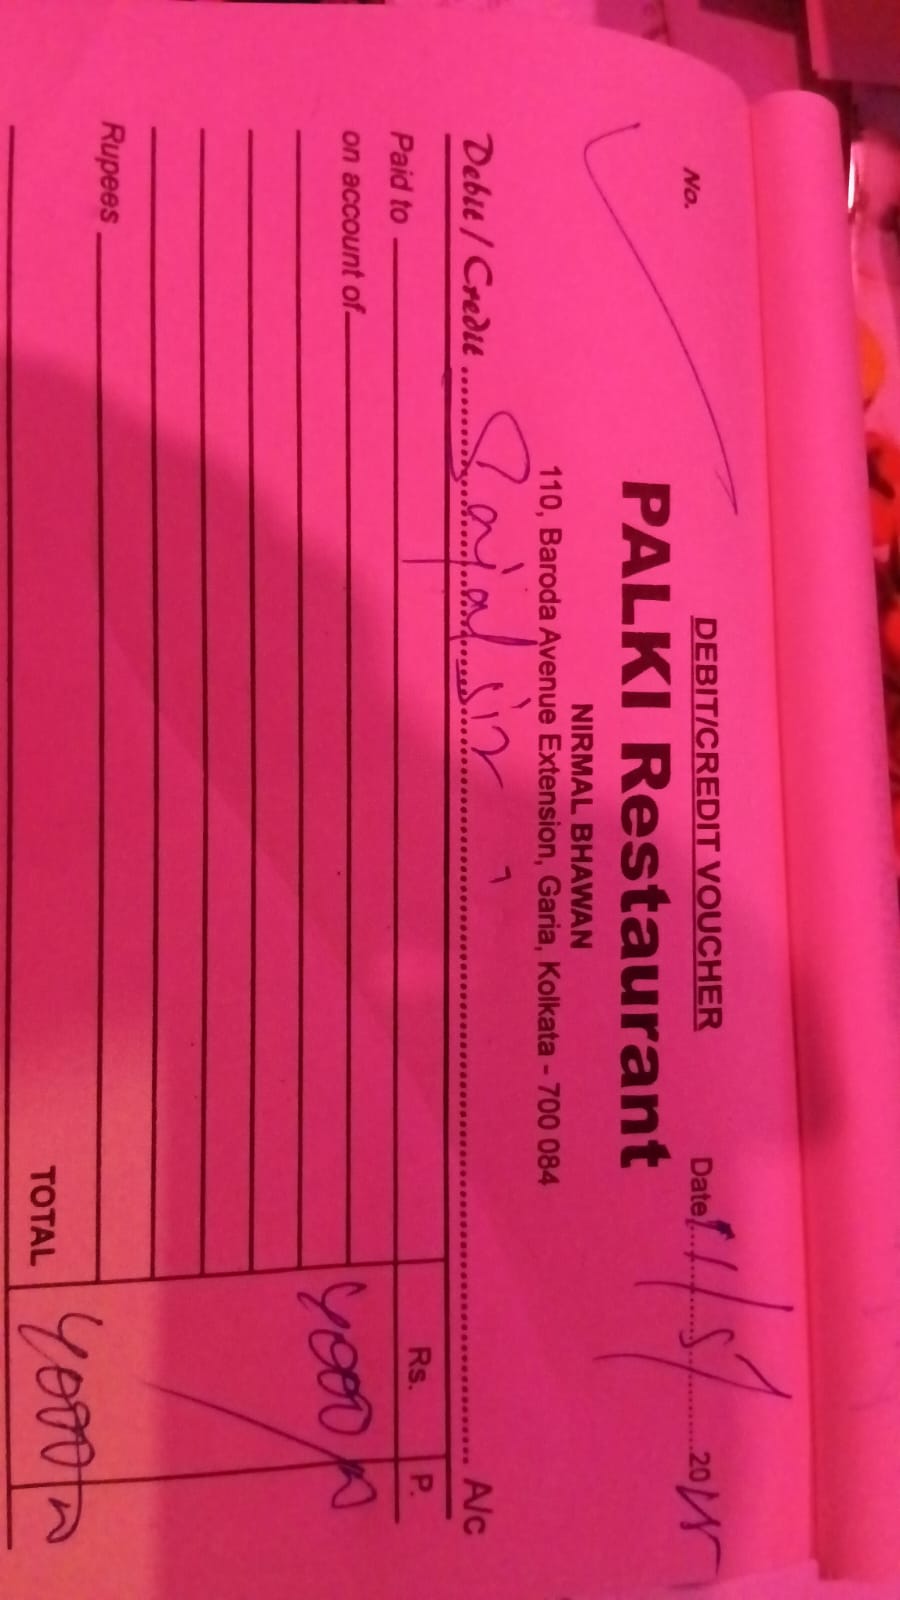 DEBIT/CREDIT VOUCHER
No. Date 1/5/20
PALKI Restaurant
NIRMAL BHAWAN
110, Baroda Avenue Extension, Garia, Kolkata - 700 084
Debit / Credit Sajal Sir A/c
Paid to Rs. P.
on account of
4000
Rupees
TOTAL 4000